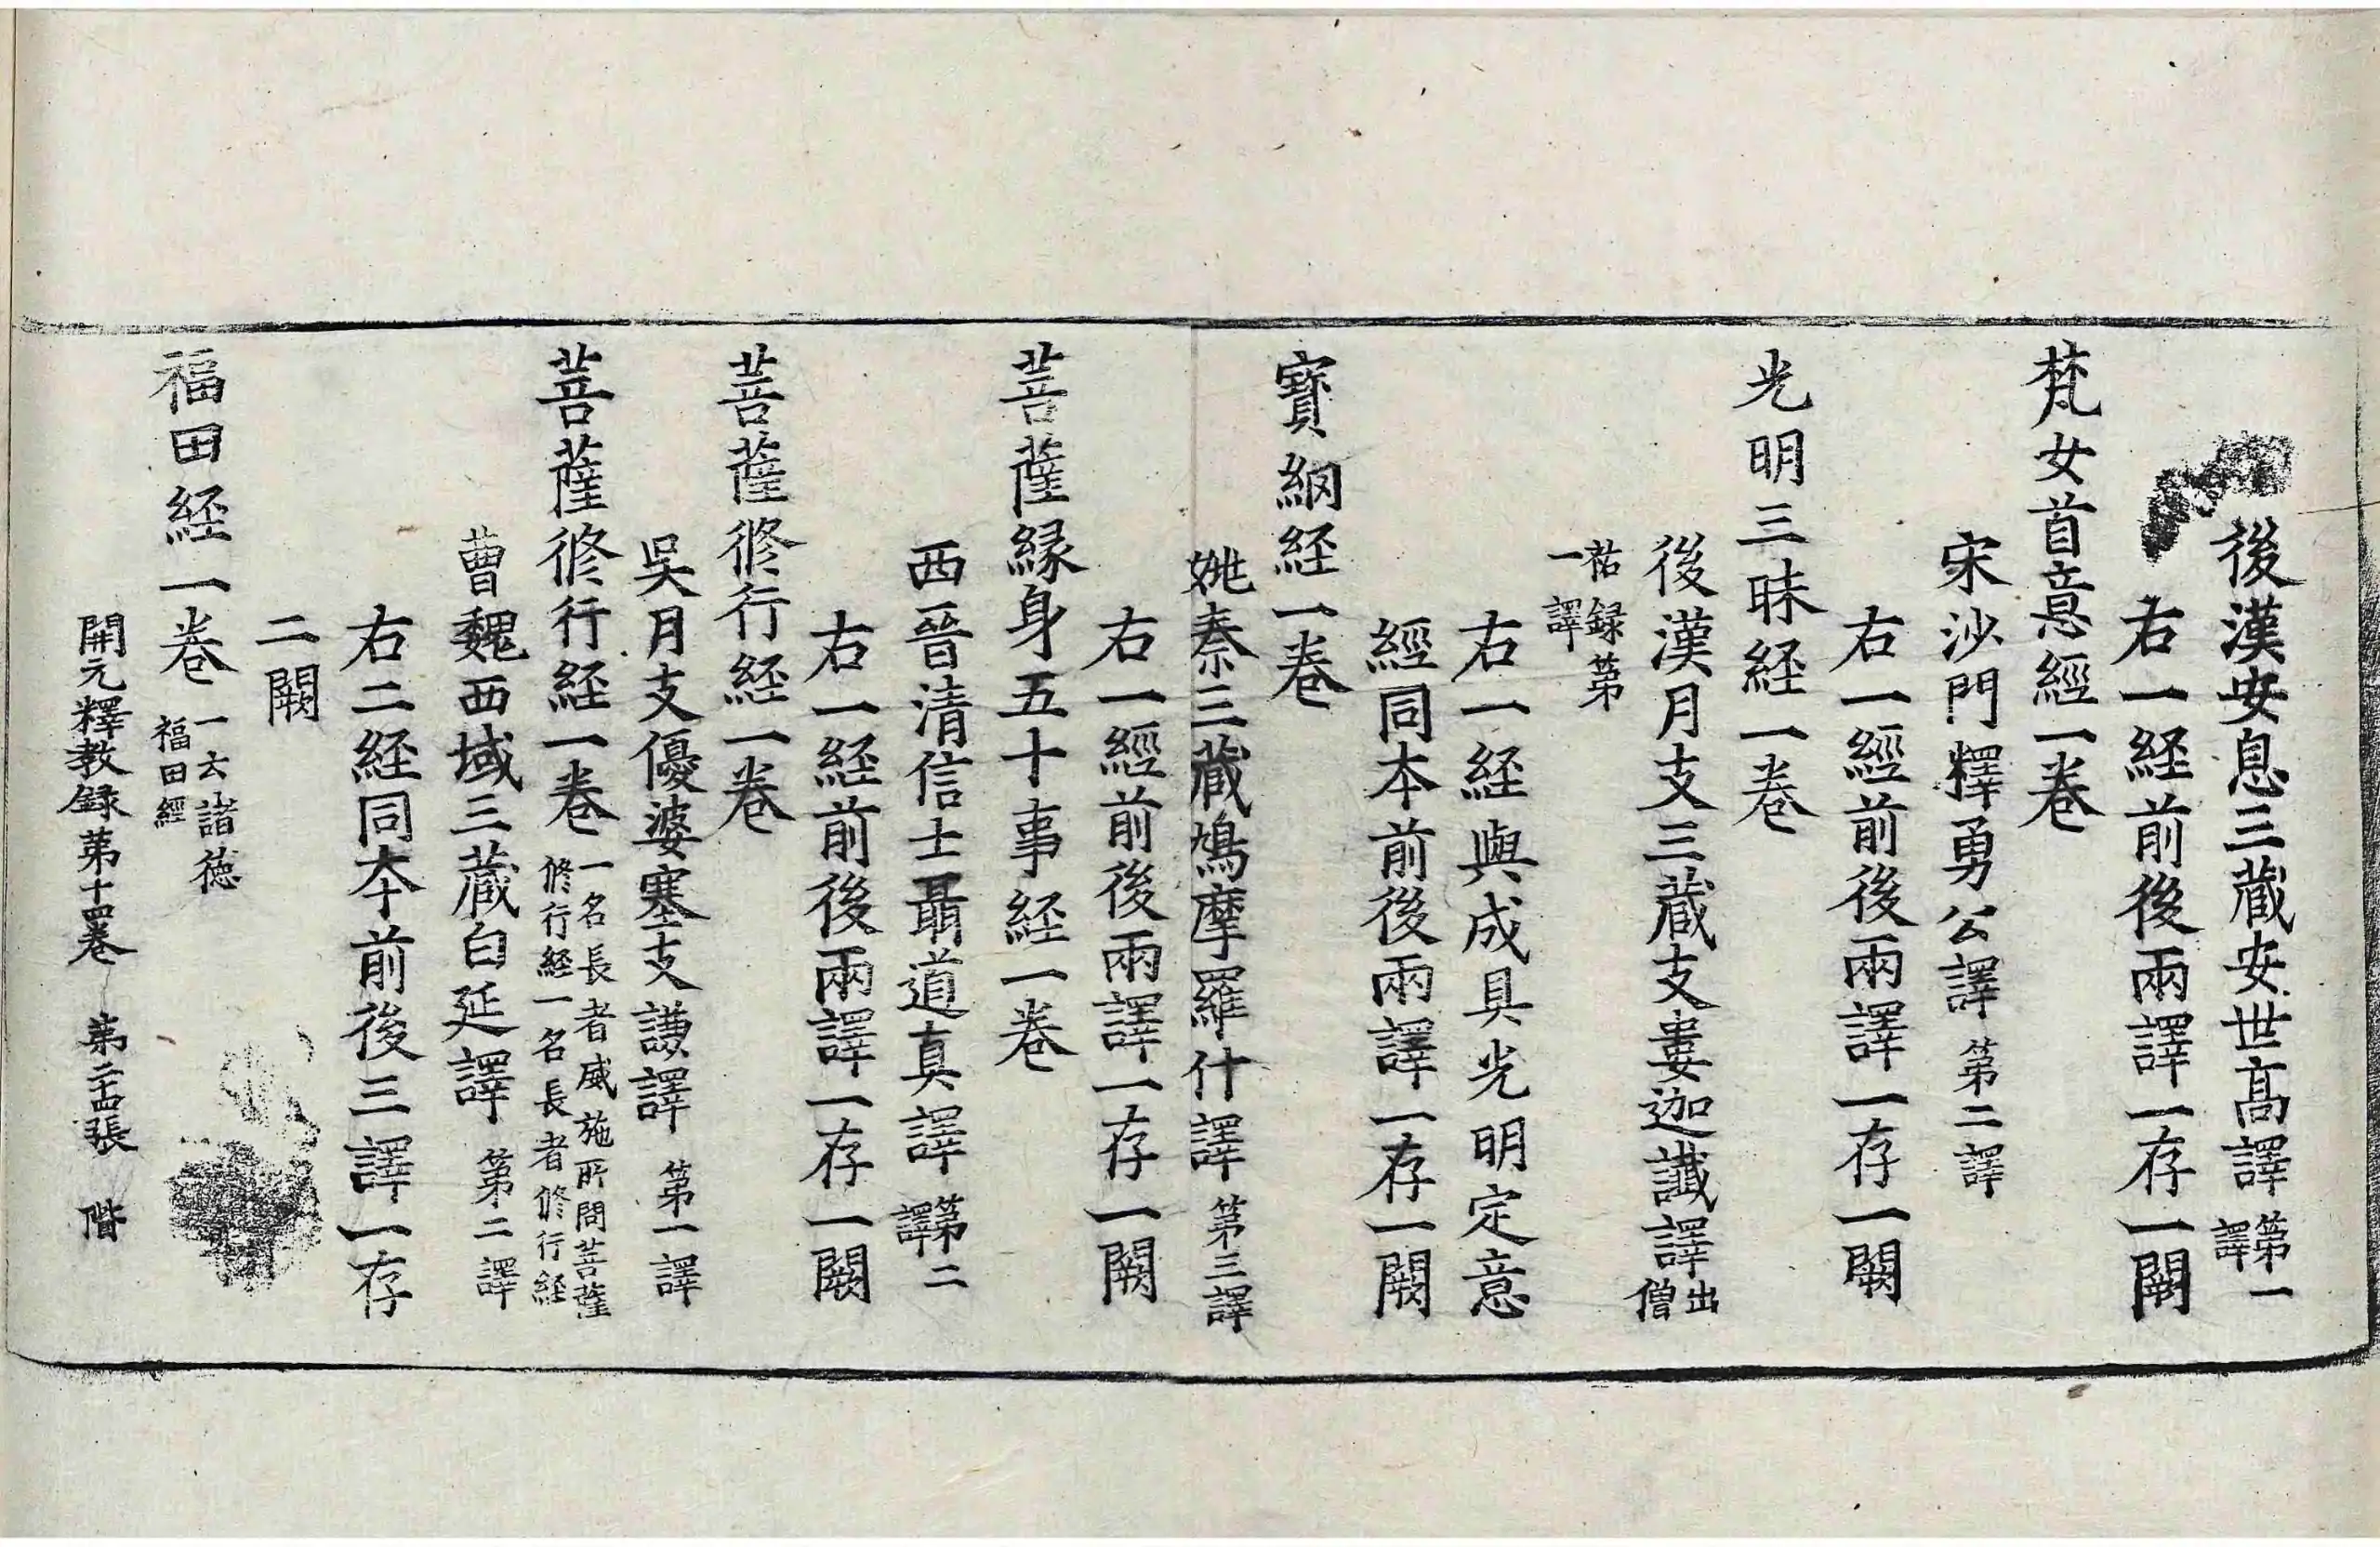 後漢安息三蔵安世髙譯第一譯
右一経前後兩譯一存一闕
梵女首意經一卷
宋沙門釋勇公譯第二譯
右一經前後兩譯一存一闕
光明三昧経一卷
後漢月支三蔵支婁迦讖譯出僧
祐録第一譯
右一経與成具光明定意
經同本前後兩譯一存一闕
寶網経一卷
姚秦三蔵鳩摩羅什譯第三譯
右一經前後兩譯一存一闕
菩薩縁身五十事経一卷
西晉清信士聶道真譯第二譯
右一経前後兩譯一存一闕
菩薩修行経一卷
吳月支優婆塞支謙譯第一譯
菩薩修行経一卷一名長者威施所問菩薩修行経一名長者修行経
曹魏西域三蔵白延譯第二譯
右二経同夲前後三譯一存
二闕
福田経一卷一云諸徳福田經
開元釋教録第十四卷 第二十四張 階